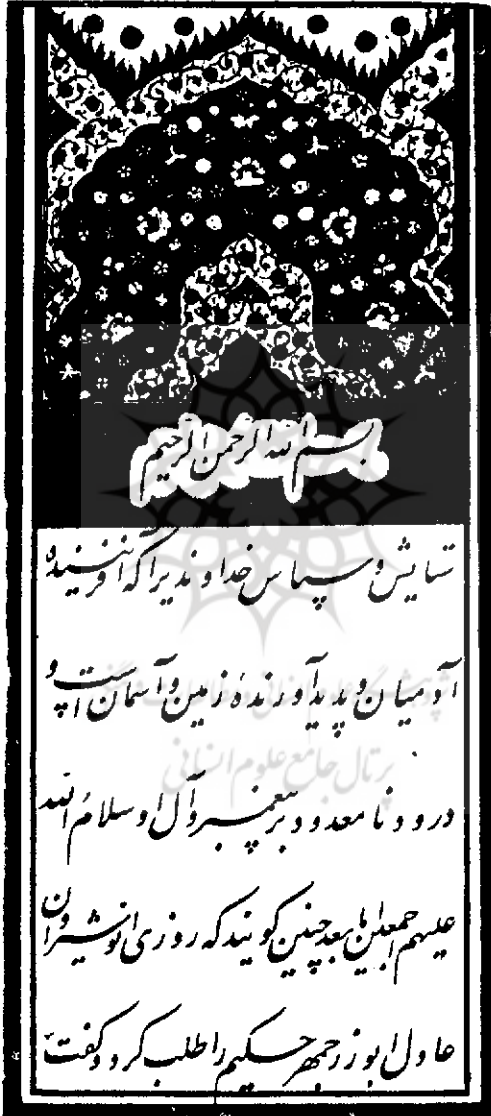 بسم الله الرحمن الرحیم
ستایش و سپاس خداوندیرا که آفریننده
آدمیان و پدید آورندهٔ زمین و آسمان است و
درود نامعدود بر پیغمبر و آل او سلام الله
علیهم اجمعین اما بعد چنین گویند که روزی انوشیروان
عادل ابوزرجمهر حکیم را طلب کرد و گفت
پژوهشگاه علوم انسانی و مطالعات فرهنگی
پرتال جامع علوم انسانی